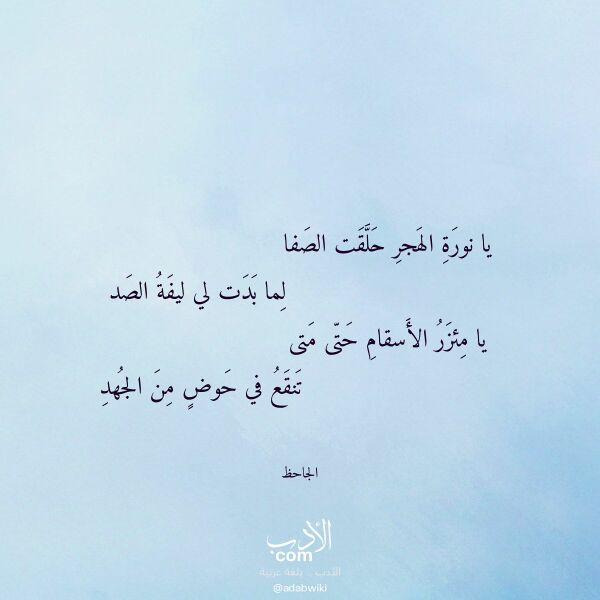 يا نورَةِ الهَجرِ حَلَّقَت الصَفا
لِما بَدَت لي ليفَةُ الصَد
يا مِئزَرُ الأَسقامِ حَتّى مَتى
تَنقَعُ في حَوضٍ مِنَ الجُهدِ
الجاحظ
الأدب
com
الأدب .. بلغة عربية
@adabwiki